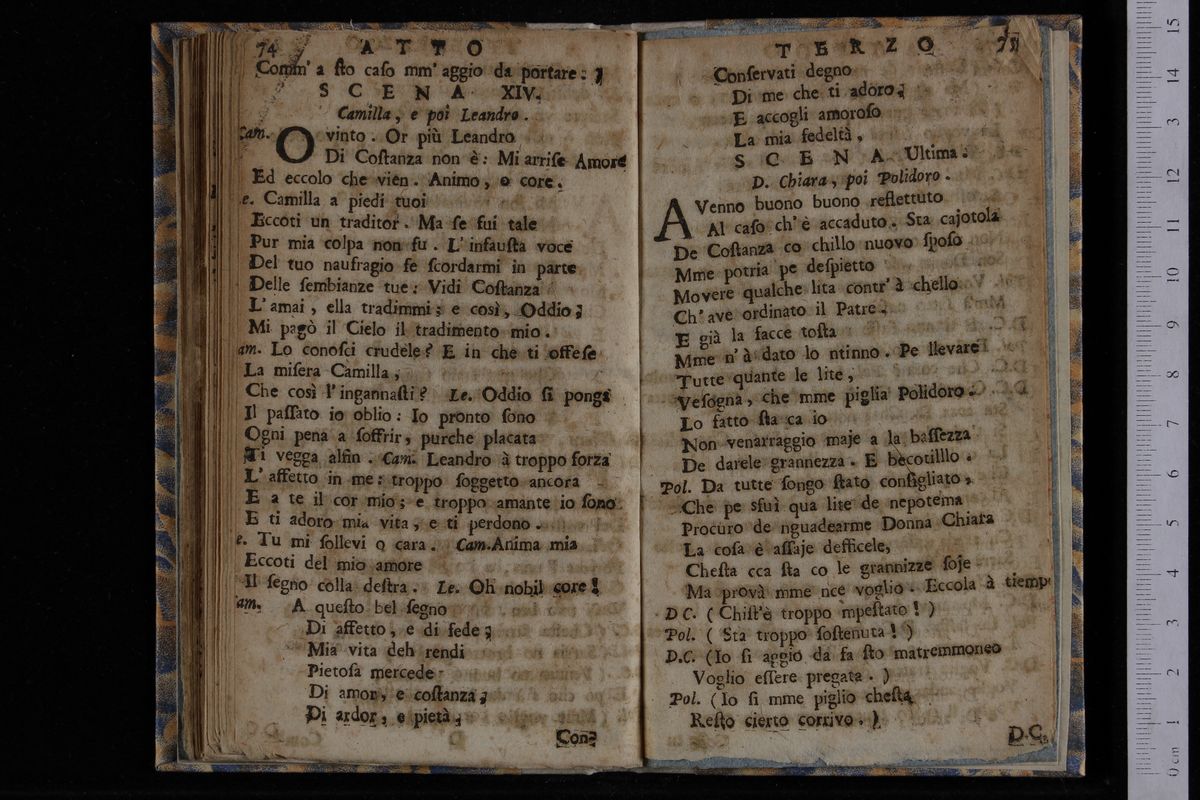 74 ATTO
Comm' a ſto caſo mm' aggio da portare.
SCENA XIV.
Camilla, e poi Leandro.
Cam. Ovinto. Or più Leandro
Di Coſtanza non è: Mi arriſe Amore
Ed eccolo che vien. Animo, o core.
e. Camilla a piedi tuoi
Eccoti un traditor. Ma ſe fui tale
Pur mia colpa non fu. L' infauſta voce
Del tuo naufragio fe ſcordarmi in parte
Delle ſembianze tue: Vidi Coſtanza
L' amai, ella tradimmi; e così, Oddio;
Mi pagò il Cielo il tradimento mio.
am. Lo conoſci crudele? E in che ti offeſe
La miſera Camilla,
Che così l' ingannaſti? Le. Oddio ſi ponga
Il paſſato io oblio: Io pronto ſono
Ogni pena a ſoffrir, purche placata
Ti vegga alfin. Cam. Leandro à troppo forza
L' affetto in me: troppo ſoggetto ancora
E a te il cor mio; e troppo amante io ſono
E ti adoro mia vita, e ti perdono.
e. Tu mi ſollevi o cara. Cam. Anima mia
Eccoti del mio amore
Il ſegno colla deſtra. Le. Oh nobil core!
am. A queſto bel ſegno
Di affetto, e di fede;
Mia vita deh rendi
Pietoſa mercede
Di amor, e coſtanza;
Di ardor, e pietà;
Con-
TERZO 75
Conſervati degno
Di me che ti adoro;
E accogli amoroſo
La mia fedeltà,
SCENA Ultima.
D. Chiara, poi Polidoro.
AVenno buono buono reflettuto
Al caſo ch' è accaduto. Sta cajotola
De Coſtanza co chillo nuovo ſpoſo
Mme potria pe deſpietto
Movere qualche lita contr' à chello
Ch' ave ordinato il Patre.
E già la facce toſta
Mme n' à dato lo ntinno. Pe llevare
Tutte quante le lite,
Veſogna, che mme piglia Polidoro.
Lo fatto ſta ca io
Non venarraggio maje a la baſſezza
De darele grannezza. E bècotilllo.
Pol. Da tutte ſongo ſtato conſigliato,
Che pe sfuì qua lite de nepotema
Procuro de nguadearme Donna Chiara
La coſa è aſſaje defficele,
Cheſta cca ſta co le grannizze ſoje
Ma provà mme nce voglio. Eccola à tiempo
D C. (Chiſt'è troppo mpeſtato!)
Pol. (Sta troppo ſoſtenuta!)
D.C. (Io ſi aggio da fa ſto matremmoneo
Voglio eſſere pregata.)
Pol. (Io ſi mme piglio cheſta
Reſto cierto corrivo.)
D.C.